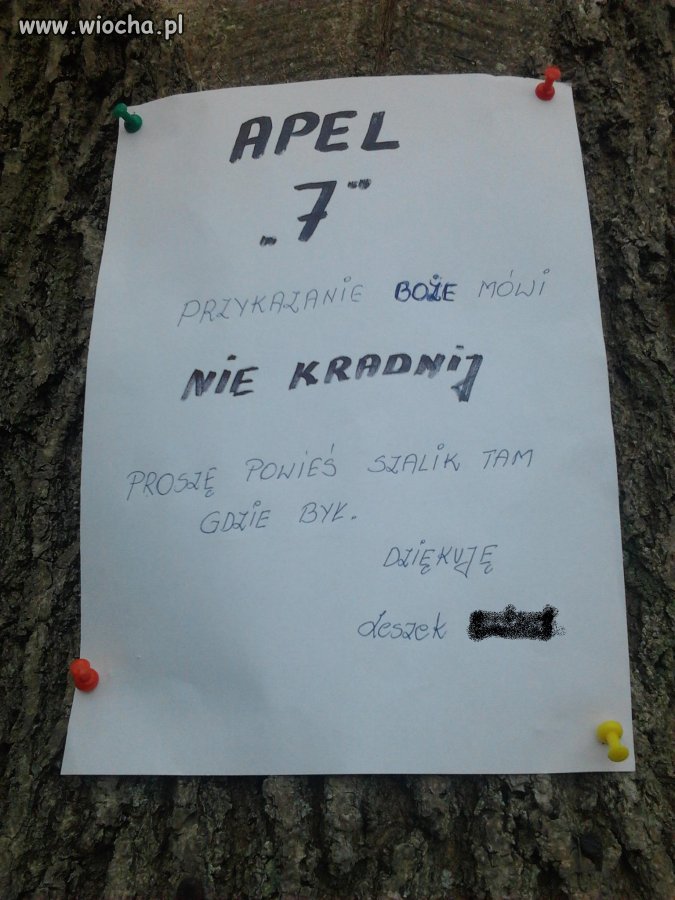 www.wiocha.pl
APEL
„7”
PRZYKAZANIE BOŻE MÓWI
NIE KRADNIJ
PROSZĘ POWIEŚ SZALIK TAM
GDZIE BYŁ.
DZIĘKUJĘ
Leszek